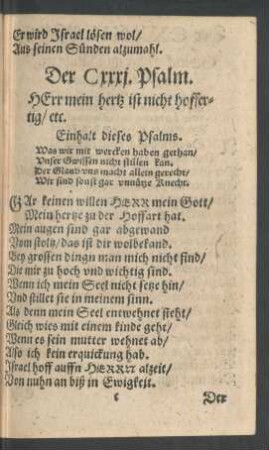 Er wird Israel lösen wol/
Aus seinen Sünden alzumahl.
Der Cxxxj. Psalm.
HErr mein hertz ist nicht hoffer-
tig/ etc.
Einhalt dieses Psalms.
Was wir mit wercken haben gethan/
Unser Gwissen nicht stillen kan.
Der Glaub uns macht allein gerecht/
Wir sind sonst gar unnütze Knecht.
GAr keinen willen HERR mein Gott/
Mein hertze zu der Hoffart hat.
Mein augen sind gar abgewand
Vom stoltz/ das ist dir wolbekand.
Bey grossen dingn man mich nicht find/
Die mir zu hoch vnd wichtig sind.
Wenn ich mein Seel nicht setze hin/
Vnd stillet sie in meinem sinn.
Als denn mein Seel entwehnet steht/
Gleich wies mit einem kinde geht/
Wenn es sein mutter wehnet ab/
Also ich kein erquickung hab.
Israel hoff auffn HERRN alzeit/
Von nuhn an biß in Ewigkeit.
c Der